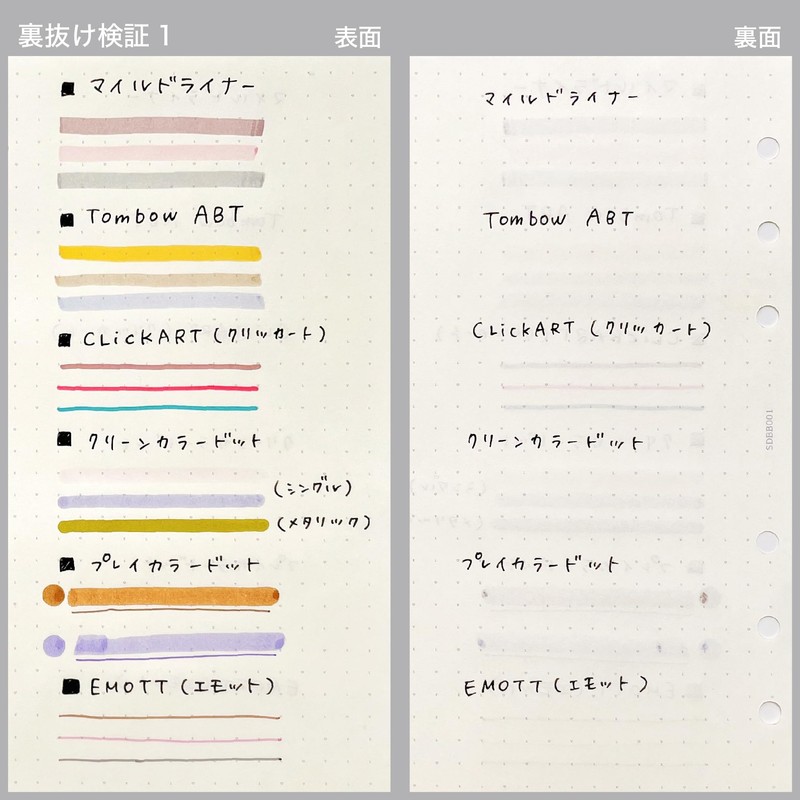 裏抜け検証 1
表面
■ マイルドライナー
■ Tombow ABT
■ CLiCKART (クリッカート)
■ クリーンカラードット
(シングル)
(メタリック)
■ プレイカラードット
■ EMOTT (エモット)
裏面
マイルドライナー
Tombow ABT
CLickART (クリッカート)
クリーンカラードット
プレイカラードット
EMOTT (エモット)
SDBB001